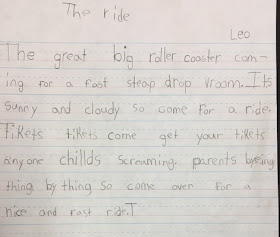 The ride
Leo
The great big roller coaster com-
ing for a fast steap drop vroom. Its
Sunny and cloudy so come for a ride.
Tikets tikets come get your tikets
any one chillds screaming. parents byeing
thing by thing so come over for a
nice and fast ride.T